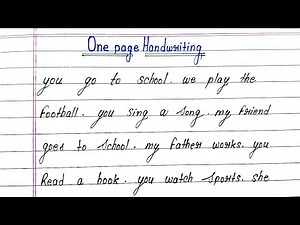 One page Handwriting
you go to school. we play the
Football. you sing a song. my friend
goes to school. my Father works. you
Read a book. you watch sports. she